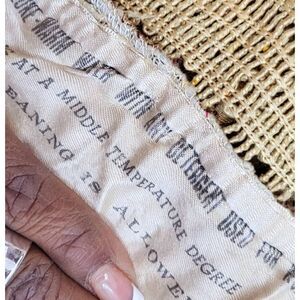 WARM WATER WITH DETERGENT USED FOR
AT A MIDDLE TEMPERATURE DEGREE
EANING IS ALLOWE